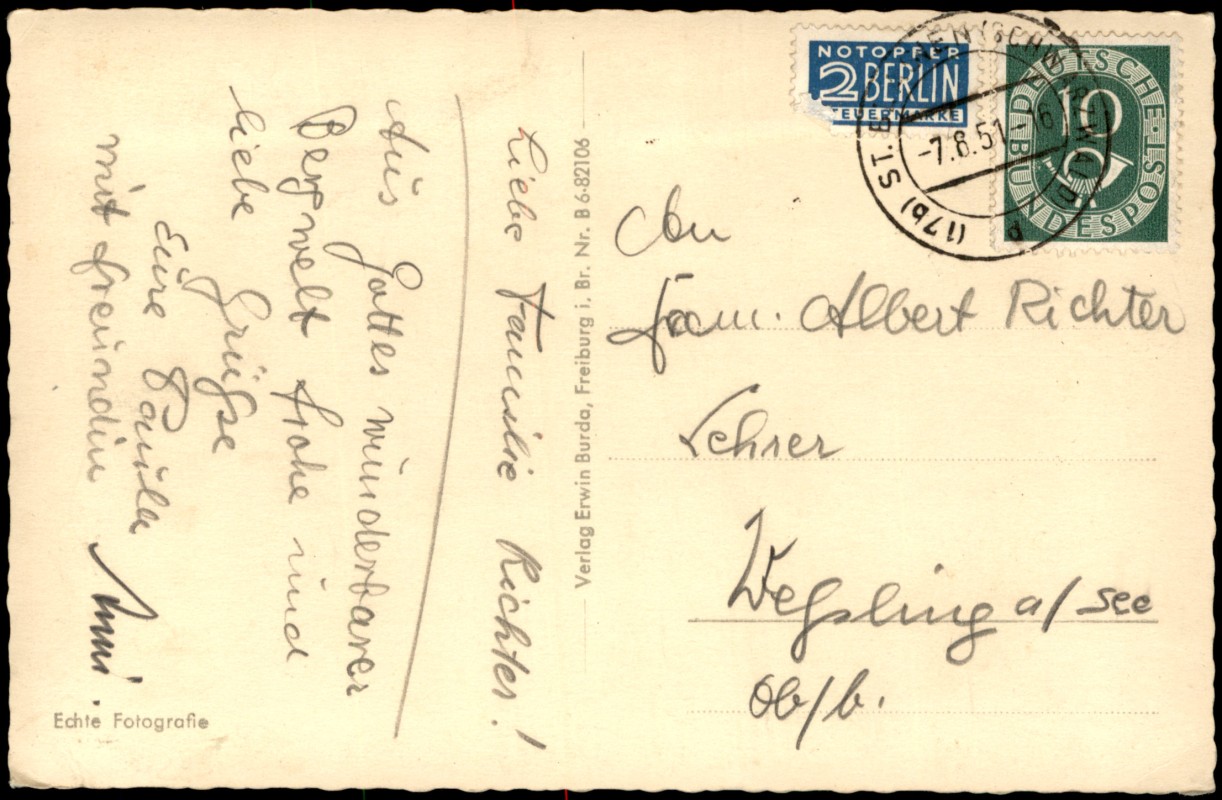 Liebe Familie Richter!
Aus Gottes wunderbarer
Bergwelt frohe und
liebe Grüße
Eure Paula
mit Freundin Anni.
Echte Fotografie
Verlag Erwin Burda, Freiburg i. Br. Nr. B 6-82106
NOTOPFER
2 BERLIN
STEUERMARKE
DEUTSCHE BUNDESPOST
10
(17b) ST. (SCHWARZWALD)
-7.8.51-16
An
Fam. Albert Richter
Lehrer
Weßling a/See
Ob/b.